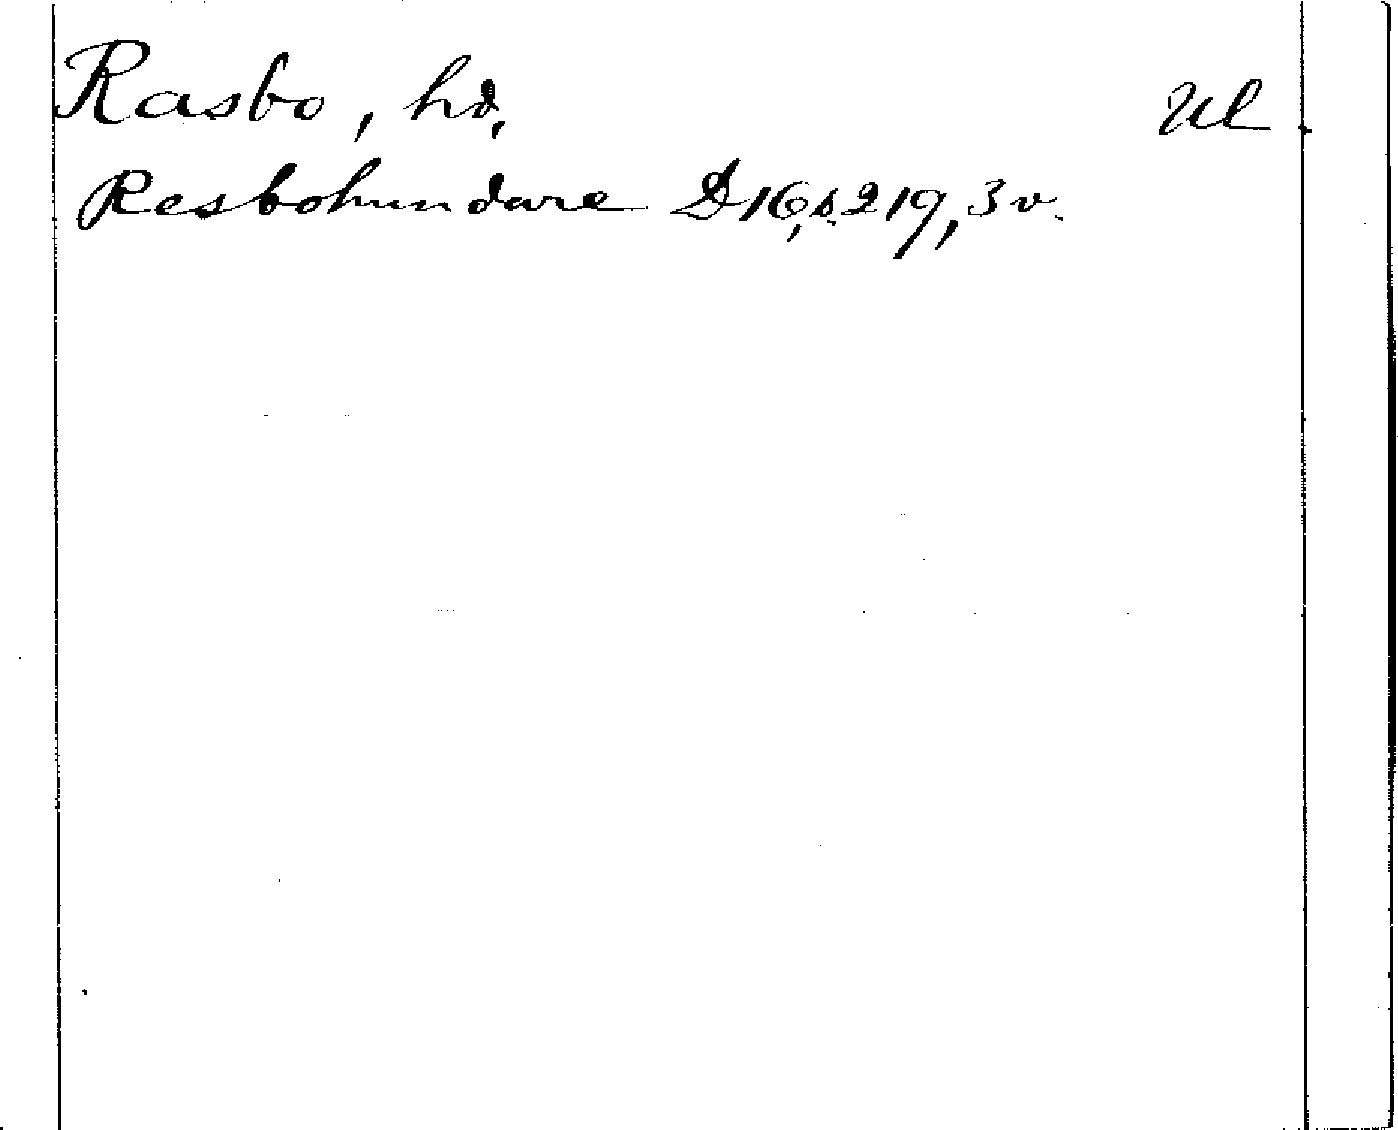 Rasbo, hd. Ul.
Resbohundare D16, s. 219, 3 v.